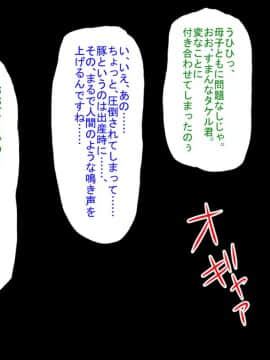 うひひっ、
母子ともに問題なしじゃ。
おお、すまんなタケル君。
変なことに
付き合わせてしまったのぅ
い、いえ、あの……
ちょっと、圧倒されてしまって……
豚というのは出産時に……、
その、まるで人間のような鳴き声を
上げるんですね……
オギャァ